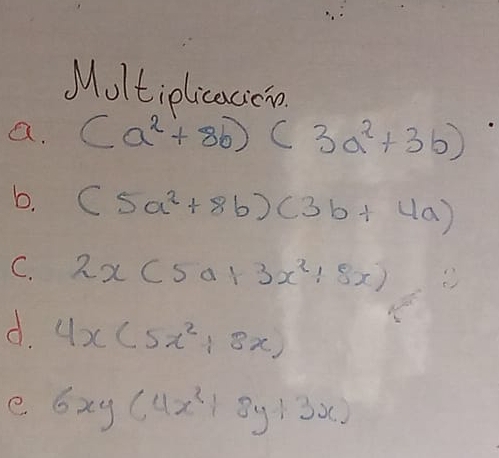 Multiplicación.
a. (a² + 8b) (3a² + 3b)
b. (5a² + 8b)(3b + 4a)
c. 2x (5a + 3x² + 8x)
d. 4x (5x² + 8x)
e. 6xy (4x² + 8y + 3x)